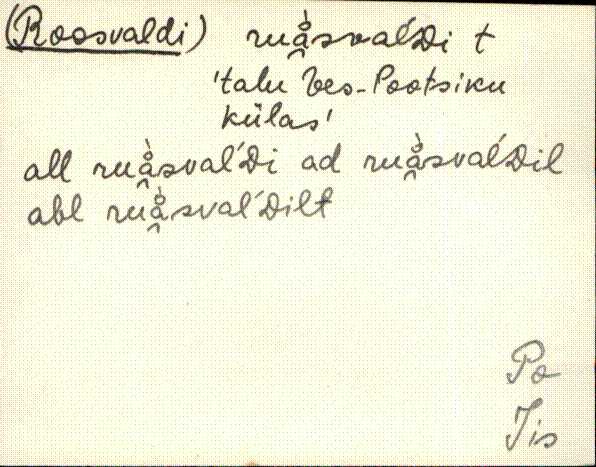 (Roosvaldi) ruå̯̀sval´Di t
'talu Ves-Pootsiku
külas'
all ruå̯̀sval´Di ad ruå̯̀sval´Dil
abl ruå̯̀sval´Dilt
Po
Jis